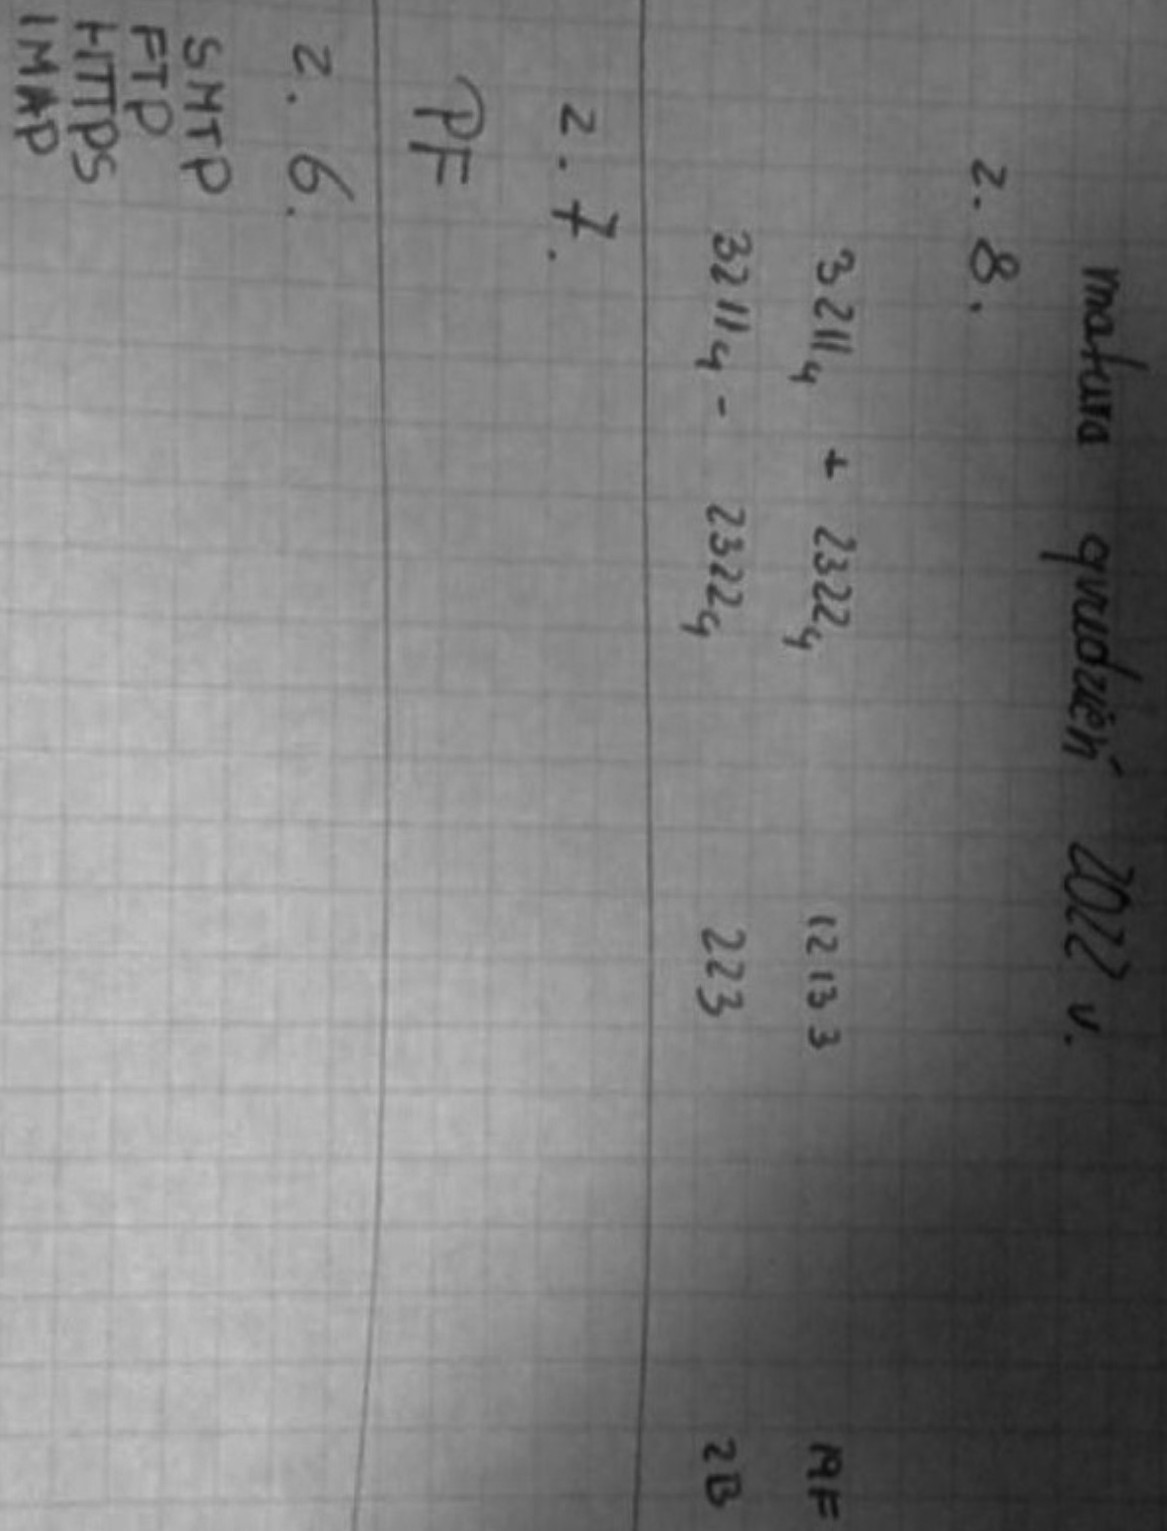 matura grudzień 2022 r.
z. 8.
3211₄ + 2322₄ 12133 19F
3211₄ - 2322₄ 223 2B
z. 7.
PF
z. 6.
SMTP
FTP
HTTPS
IMAP